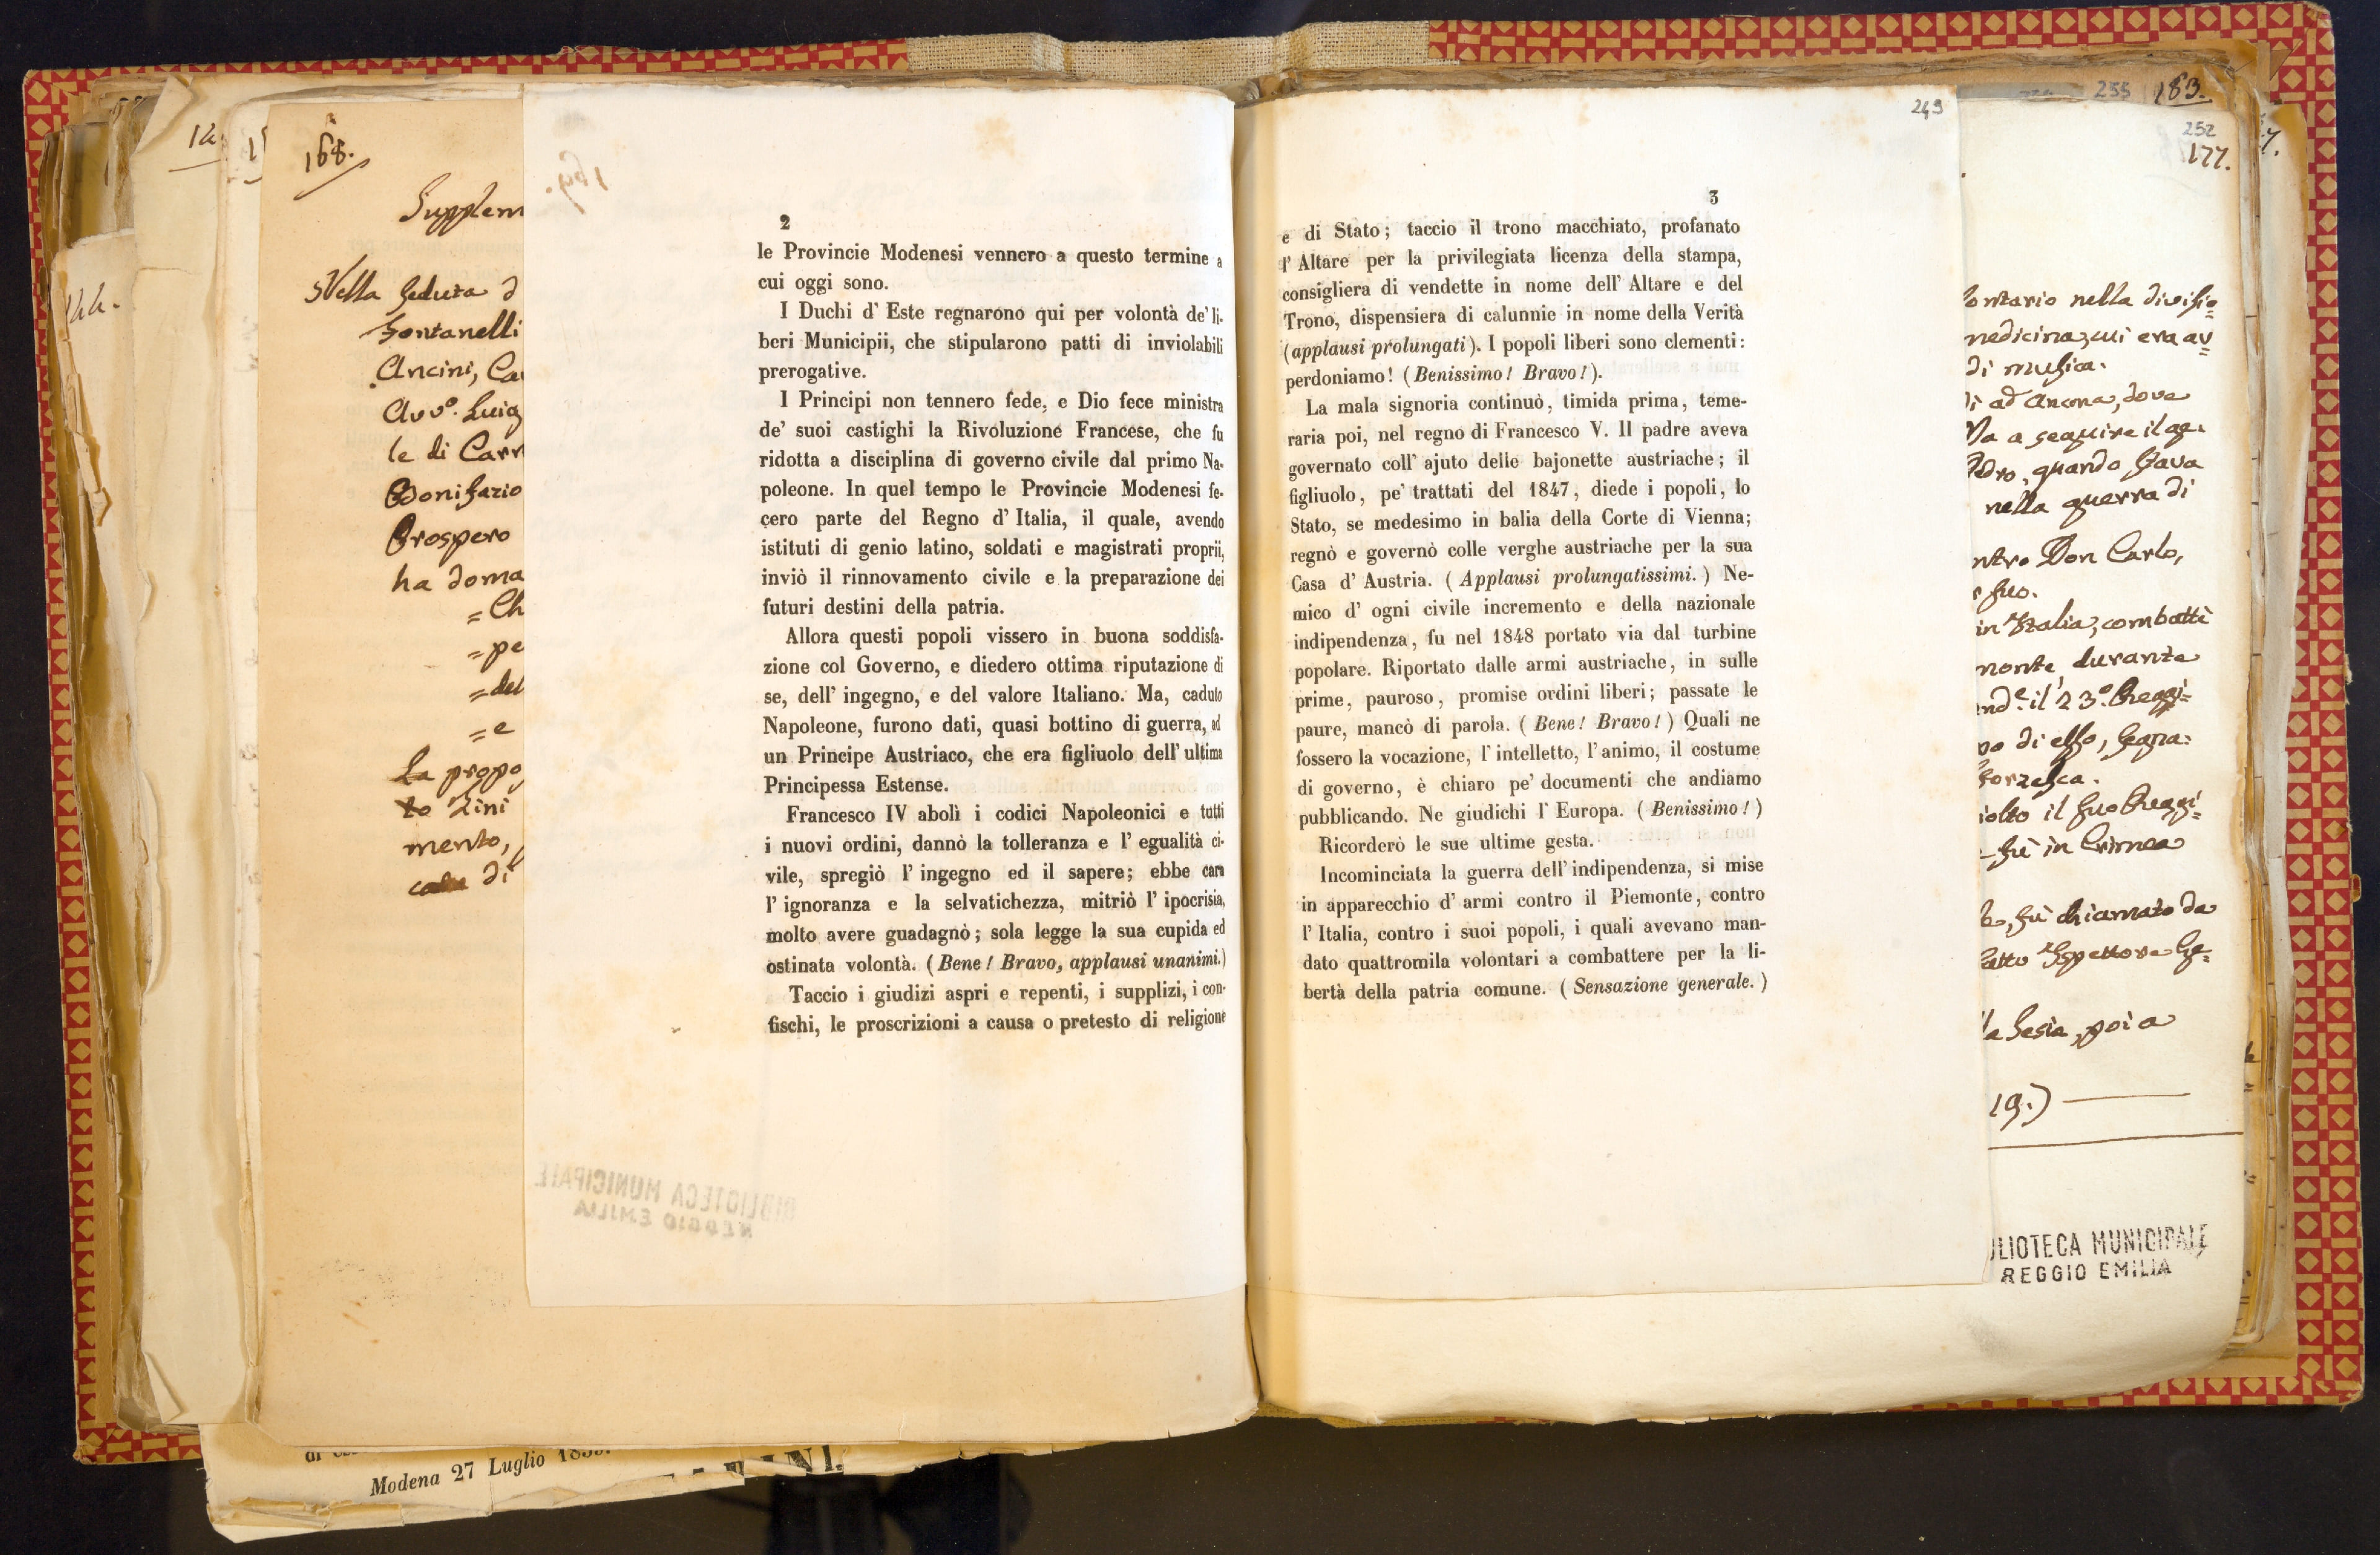 168.
Supplem
Nella seduta d
Fontanelli
Ancini, Ca
Avvo. Luig
le di Carr
Bonifazio
Prospero
ha doma
=Ch
=pe
=del
=e
La propo
to Zini
mento,
di
144.
169.
2
le Provincie Modenesi vennero a questo termine a
cui oggi sono.
I Duchi d' Este regnarono qui per volontà de' li-
beri Municipii, che stipularono patti di inviolabili
prerogative.
I Principi non tennero fede, e Dio fece ministra
de' suoi castighi la Rivoluzione Francese, che fu
ridotta a disciplina di governo civile dal primo Na-
poleone. In quel tempo le Provincie Modenesi fe-
cero parte del Regno d' Italia, il quale, avendo
istituti di genio latino, soldati e magistrati proprii,
inviò il rinnovamento civile e la preparazione dei
futuri destini della patria.
Allora questi popoli vissero in buona soddisfa-
zione col Governo, e diedero ottima riputazione di
se, dell' ingegno, e del valore Italiano. Ma, caduto
Napoleone, furono dati, quasi bottino di guerra, ad
un Principe Austriaco, che era figliuolo dell' ultima
Principessa Estense.
Francesco IV abolì i codici Napoleonici e tutti
i nuovi ordini, dannò la tolleranza e l' egualità ci-
vile, spregiò l' ingegno ed il sapere; ebbe cara
l' ignoranza e la selvatichezza, mitriò l' ipocrisia,
molto avere guadagnò; sola legge la sua cupida ed
ostinata volontà. (Bene! Bravo, applausi unanimi.)
Taccio i giudizi aspri e repenti, i supplizi, i con-
fischi, le proscrizioni a causa o pretesto di religione
BIBLIOTECA MUNICIPALE
REGGIO EMILIA
Modena 27 Luglio 1859.
249
3
e di Stato; taccio il trono macchiato, profanato
l' Altare per la privilegiata licenza della stampa,
consigliera di vendette in nome dell' Altare e del
Trono, dispensiera di calunnie in nome della Verità
(applausi prolungati). I popoli liberi sono clementi:
perdoniamo! (Benissimo! Bravo!).
La mala signoria continuò, timida prima, teme-
raria poi, nel regno di Francesco V. Il padre aveva
governato coll' ajuto delle bajonette austriache; il
figliuolo, pe' trattati del 1847, diede i popoli, lo
Stato, se medesimo in balia della Corte di Vienna;
regnò e governò colle verghe austriache per la sua
Casa d' Austria. (Applausi prolungatissimi.) Ne-
mico d' ogni civile incremento e della nazionale
indipendenza, fu nel 1848 portato via dal turbine
popolare. Riportato dalle armi austriache, in sulle
prime, pauroso, promise ordini liberi; passate le
paure, mancò di parola. (Bene! Bravo!) Quali ne
fossero la vocazione, l' intelletto, l' animo, il costume
di governo, è chiaro pe' documenti che andiamo
pubblicando. Ne giudichi l' Europa. (Benissimo!)
Ricorderò le sue ultime gesta.
Incominciata la guerra dell' indipendenza, si mise
in apparecchio d' armi contro il Piemonte, contro
l' Italia, contro i suoi popoli, i quali avevano man-
dato quattromila volontari a combattere per la li-
bertà della patria comune. (Sensazione generale.)
255 183.
252
177.
lontario nella divisio=
medicina, cui era av=
di musica.
di ad Ancona, dove
Va a seguire il ge.
Pedro, quando stava
nella guerra di
ntro Don Carlo,
suo.
in Italia, combattè
monte, durante
il 23o. Reggi=
vo di esso, segna:
Sforzesca.
iolto il suo Reggi=
fù in Crimea
fù chiamato da
fatto Ispettore Ge=
la Sesia, poi a
19.)
BLIOTECA MUNICIPALE
REGGIO EMILIA